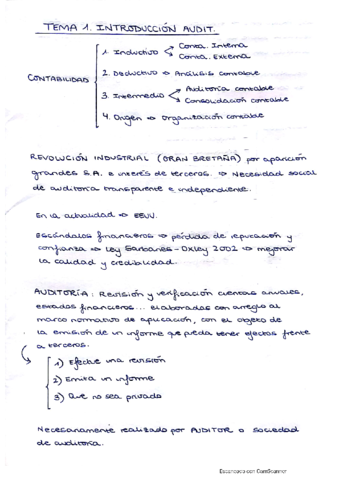 TEMA 1. INTRODUCCIÓN AUDIT.
CONTABILIDAD
1. Inductivo
Conta. Interna
Conta. Externa
2. Deductivo ⇒ Análisis contable
3. Intermedio
Auditoría contable
Consolidación contable
4. Origen ⇒ organización contable
REVOLUCIÓN INDUSTRIAL (GRAN BRETAÑA) por aparición
grandes S.A. e interés de terceros. ⇒ Necesidad social
de auditoría transparente e independiente.
En la actualidad ⇒ EEUU.
Escándalos financieros ⇒ pérdida de reputación y
confianza ⇒ Ley Sarbanes-Oxley 2002 ⇒ mejorar
la calidad y credibilidad.
AUDITORÍA: Revisión y verificación cuentas anuales,
estados financieros... elaborados con arreglo al
marco normativo de aplicación, con el objeto de
la emisión de un informe que pueda tener efectos frente
a terceros.
1) Efectue una revisión
2) Emita un informe
3) Que no sea privado
Necesariamente realizado por AUDITOR o sociedad
de auditoría.
Escaneado con CamScanner